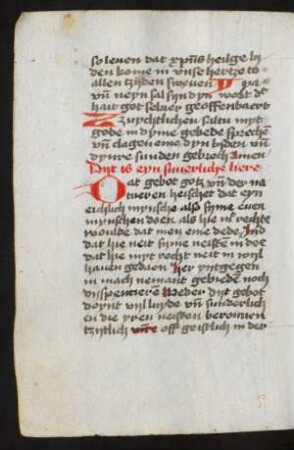 so leven dat xp̄ns heilge ly
den kome in vnse hertze to
allen tzijden
vn̄ neyn sal sijn dyn wort
hait got selver geoffenbaert
Zuychtlichen saltu myt
gode in dyme gebede sprechē
vn̄ clagen eme dyn lyden vn̄
dynre sunden gebrech Amen
Dyt is eyn suuerliche lere
Dat gebot gotz vn̄ der na
tueren heischet dat eyn
eicklich mynsche also syme euen
mynschen doen als he nl̄ rechte
woulde dat men eme dede Ind
dat he neit syme neiste in doe
dat he myt recht neit in wijl
hauen gedaen her yntgegen
in mach nemant gebiede noch
dyspensiere Weder dyt gebot
doynt vijl lude vn̄ sunderlich
en die yren neisten berouuen
tzijtlich off geistlich in der